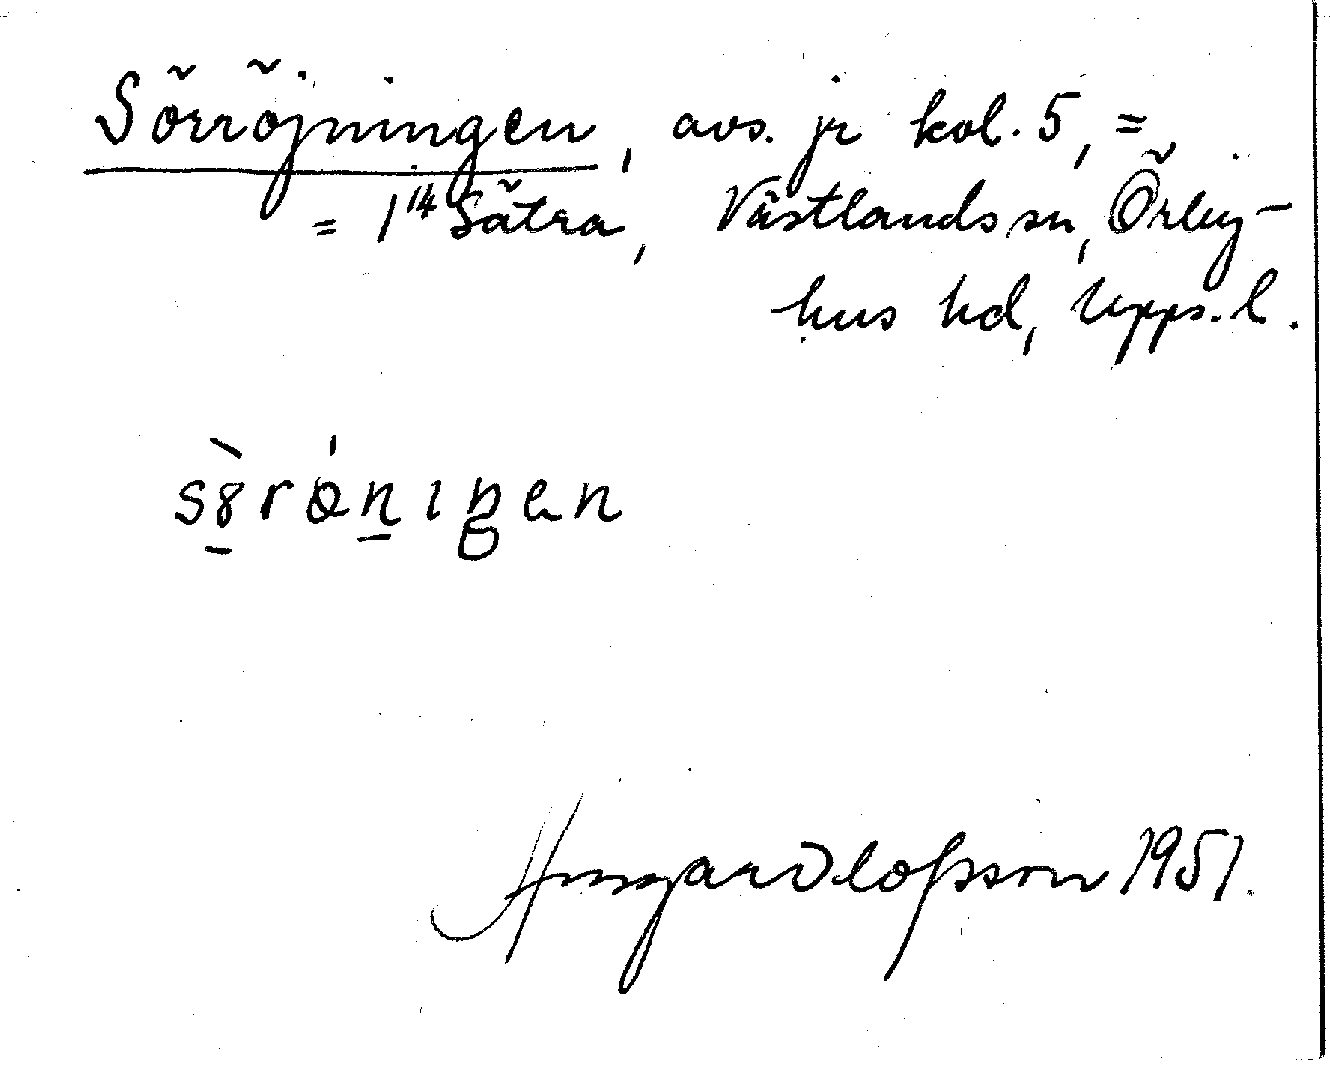 Sörröjningen, avs. jr kol. 5, =
= 1¹⁴ Sätra, Västlands sn, Örby-
hus hd, Upps. l.
Ansgar Olofsson 1951.